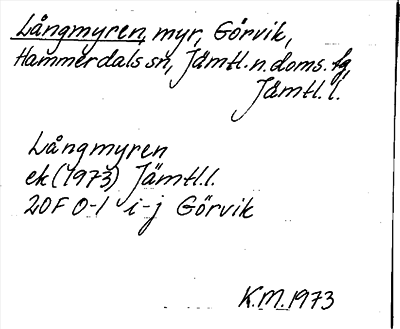 Långmyren, myr, Görvik,
Hammerdals sn, Jämtl. n. doms. fg,
Jämtl. l.
Långmyren
ek (1973) Jämtl. l.
20F 0-1 i-j Görvik
K.M. 1973